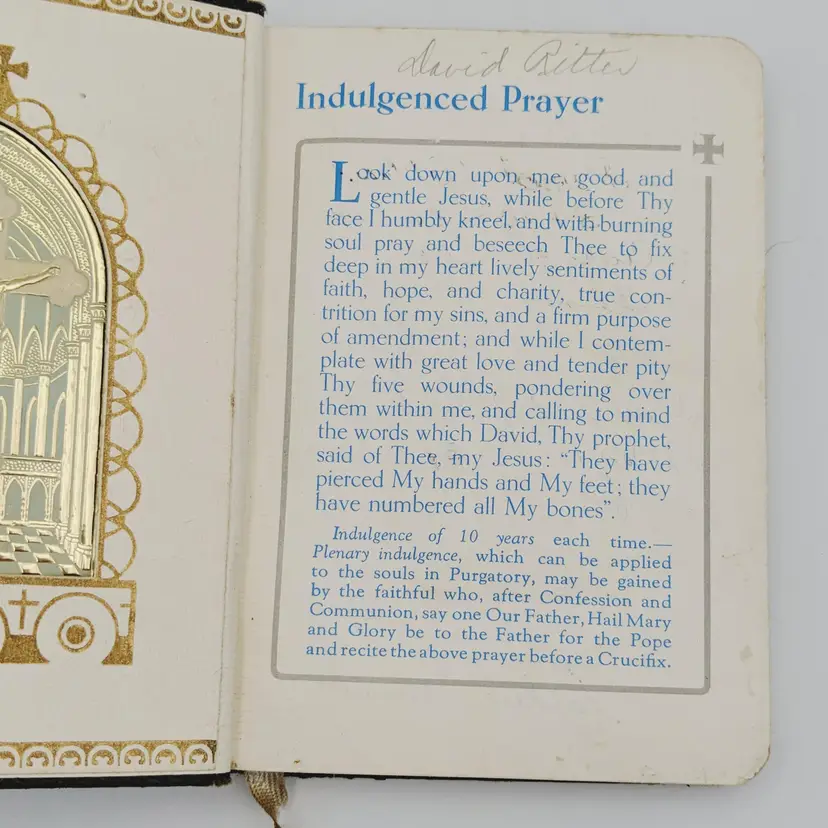 David Ritter
Indulgenced Prayer
Look down upon me, good and
gentle Jesus, while before Thy
face I humbly kneel, and with burning
soul pray and beseech Thee to fix
deep in my heart lively sentiments of
faith, hope, and charity, true con-
trition for my sins, and a firm purpose
of amendment; and while I contem-
plate with great love and tender pity
Thy five wounds, pondering over
them within me, and calling to mind
the words which David, Thy prophet,
said of Thee, my Jesus: “They have
pierced My hands and My feet; they
have numbered all My bones”.
Indulgence of 10 years each time.—
Plenary indulgence, which can be applied
to the souls in Purgatory, may be gained
by the faithful who, after Confession and
Communion, say one Our Father, Hail Mary
and Glory be to the Father for the Pope
and recite the above prayer before a Crucifix.